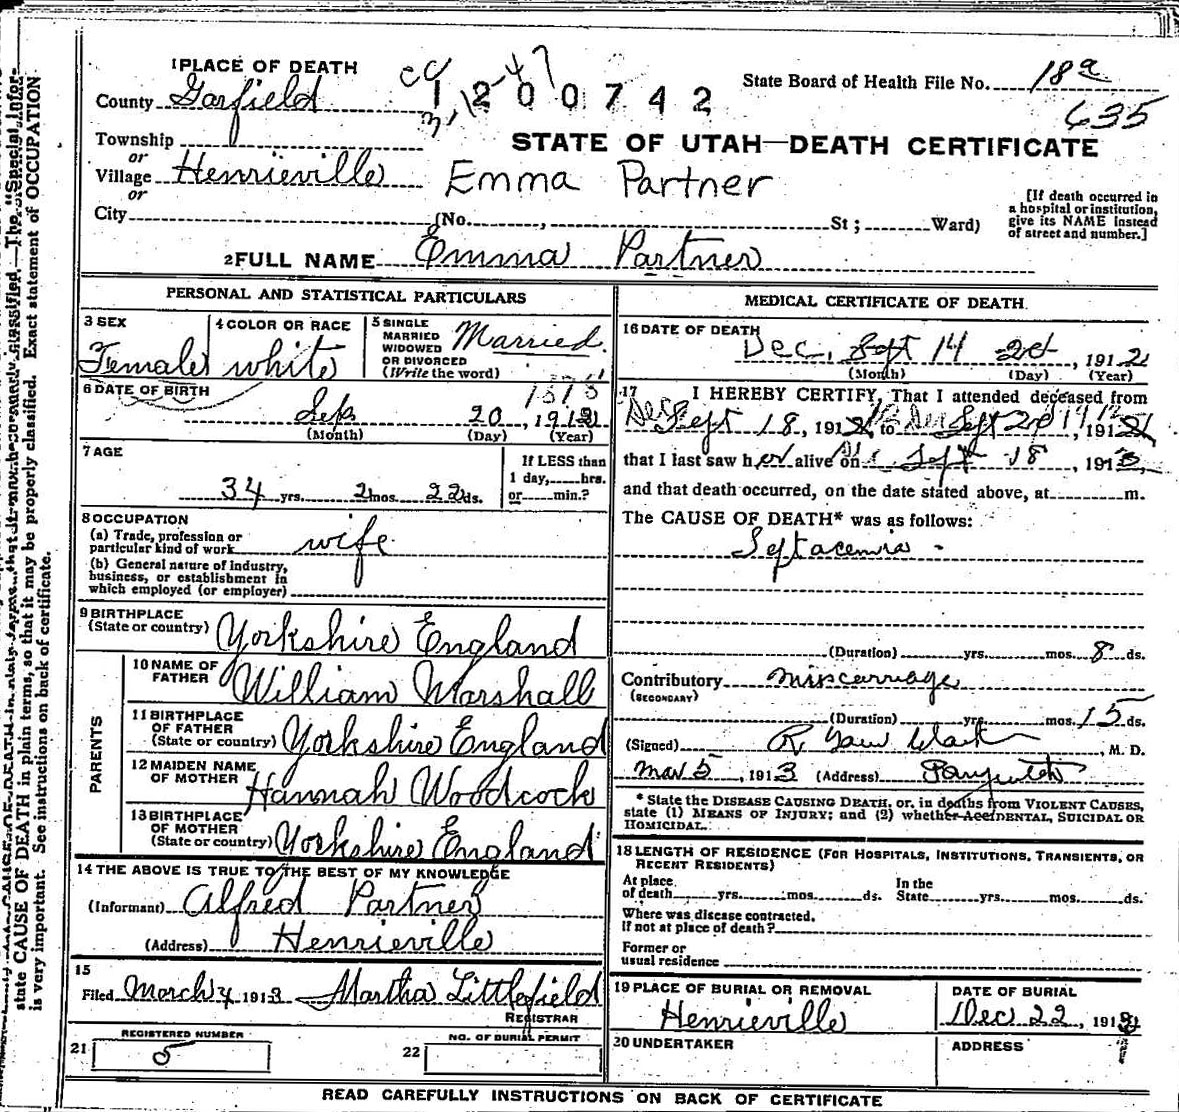 1 PLACE OF DEATH
County Garfield
1200742
State Board of Health File No. 18a
635
Township
or
Village Henrieville
or
City
STATE OF UTAH—DEATH CERTIFICATE
Emma Partner
(No. , St ; Ward)
[If death occurred in
a hospital or institution,
give its NAME instead
of street and number.]
2 FULL NAME Emma Partner
PERSONAL AND STATISTICAL PARTICULARS
3 SEX
Female
4 COLOR OR RACE
white
5 SINGLE
MARRIED
WIDOWED
OR DIVORCED
(Write the word)
Married
6 DATE OF BIRTH
Sep 20, 191
(Month) (Day) (Year)
7 AGE
34 yrs. 2 mos. 22 ds.
If LESS than
1 day, hrs.
or min.?
8 OCCUPATION
(a) Trade, profession or
particular kind of work wife
(b) General nature of industry,
business, or establishment in
which employed (or employer)
9 BIRTHPLACE
(State or country) Yorkshire England
PARENTS
10 NAME OF
FATHER William Marshall
11 BIRTHPLACE
OF FATHER
(State or country) Yorkshire England
12 MAIDEN NAME
OF MOTHER Hannah Woodcock
13 BIRTHPLACE
OF MOTHER
(State or country) Yorkshire England
14 THE ABOVE IS TRUE TO THE BEST OF MY KNOWLEDGE
(Informant) Alfred Partner
(Address) Henrieville
15
Filed March 4 1913 Martha Littlefield
REGISTRAR
REGISTERED NUMBER
21 5
NO. OF BURIAL PERMIT
22
MEDICAL CERTIFICATE OF DEATH
16 DATE OF DEATH
Dec. Sept 14 2d, 1912
(Month) (Day) (Year)
17 I HEREBY CERTIFY, That I attended deceased from
Dec Sept 18, 191 to Dec Sept 2d 1912, 191
that I last saw her alive on Sept 18, 191
and that death occurred, on the date stated above, at m.
The CAUSE OF DEATH* was as follows:
Septacemia
(Duration) yrs. mos. 8 ds.
Contributory miscarriage
(SECONDARY)
(Duration) yrs. mos. 15 ds.
(Signed) R , M. D.
Mar 5, 1913 (Address) Panguitch
* State the DISEASE CAUSING DEATH, or, in deaths from VIOLENT CAUSES,
state (1) MEANS OF INJURY; and (2) whether ACCIDENTAL, SUICIDAL OR
HOMICIDAL.
18 LENGTH OF RESIDENCE (FOR HOSPITALS, INSTITUTIONS, TRANSIENTS, OR
RECENT RESIDENTS)
At place
of death yrs. mos. ds.
In the
State yrs. mos. ds.
Where was disease contracted,
If not at place of death?
Former or
usual residence
19 PLACE OF BURIAL OR REMOVAL
Henrieville
DATE OF BURIAL
Dec 22, 191
20 UNDERTAKER
ADDRESS
READ CAREFULLY INSTRUCTIONS ON BACK OF CERTIFICATE
state CAUSE OF DEATH in plain terms, so that it may be properly classified. Exact statement of OCCUPATION
is very important. See instructions on back of certificate.